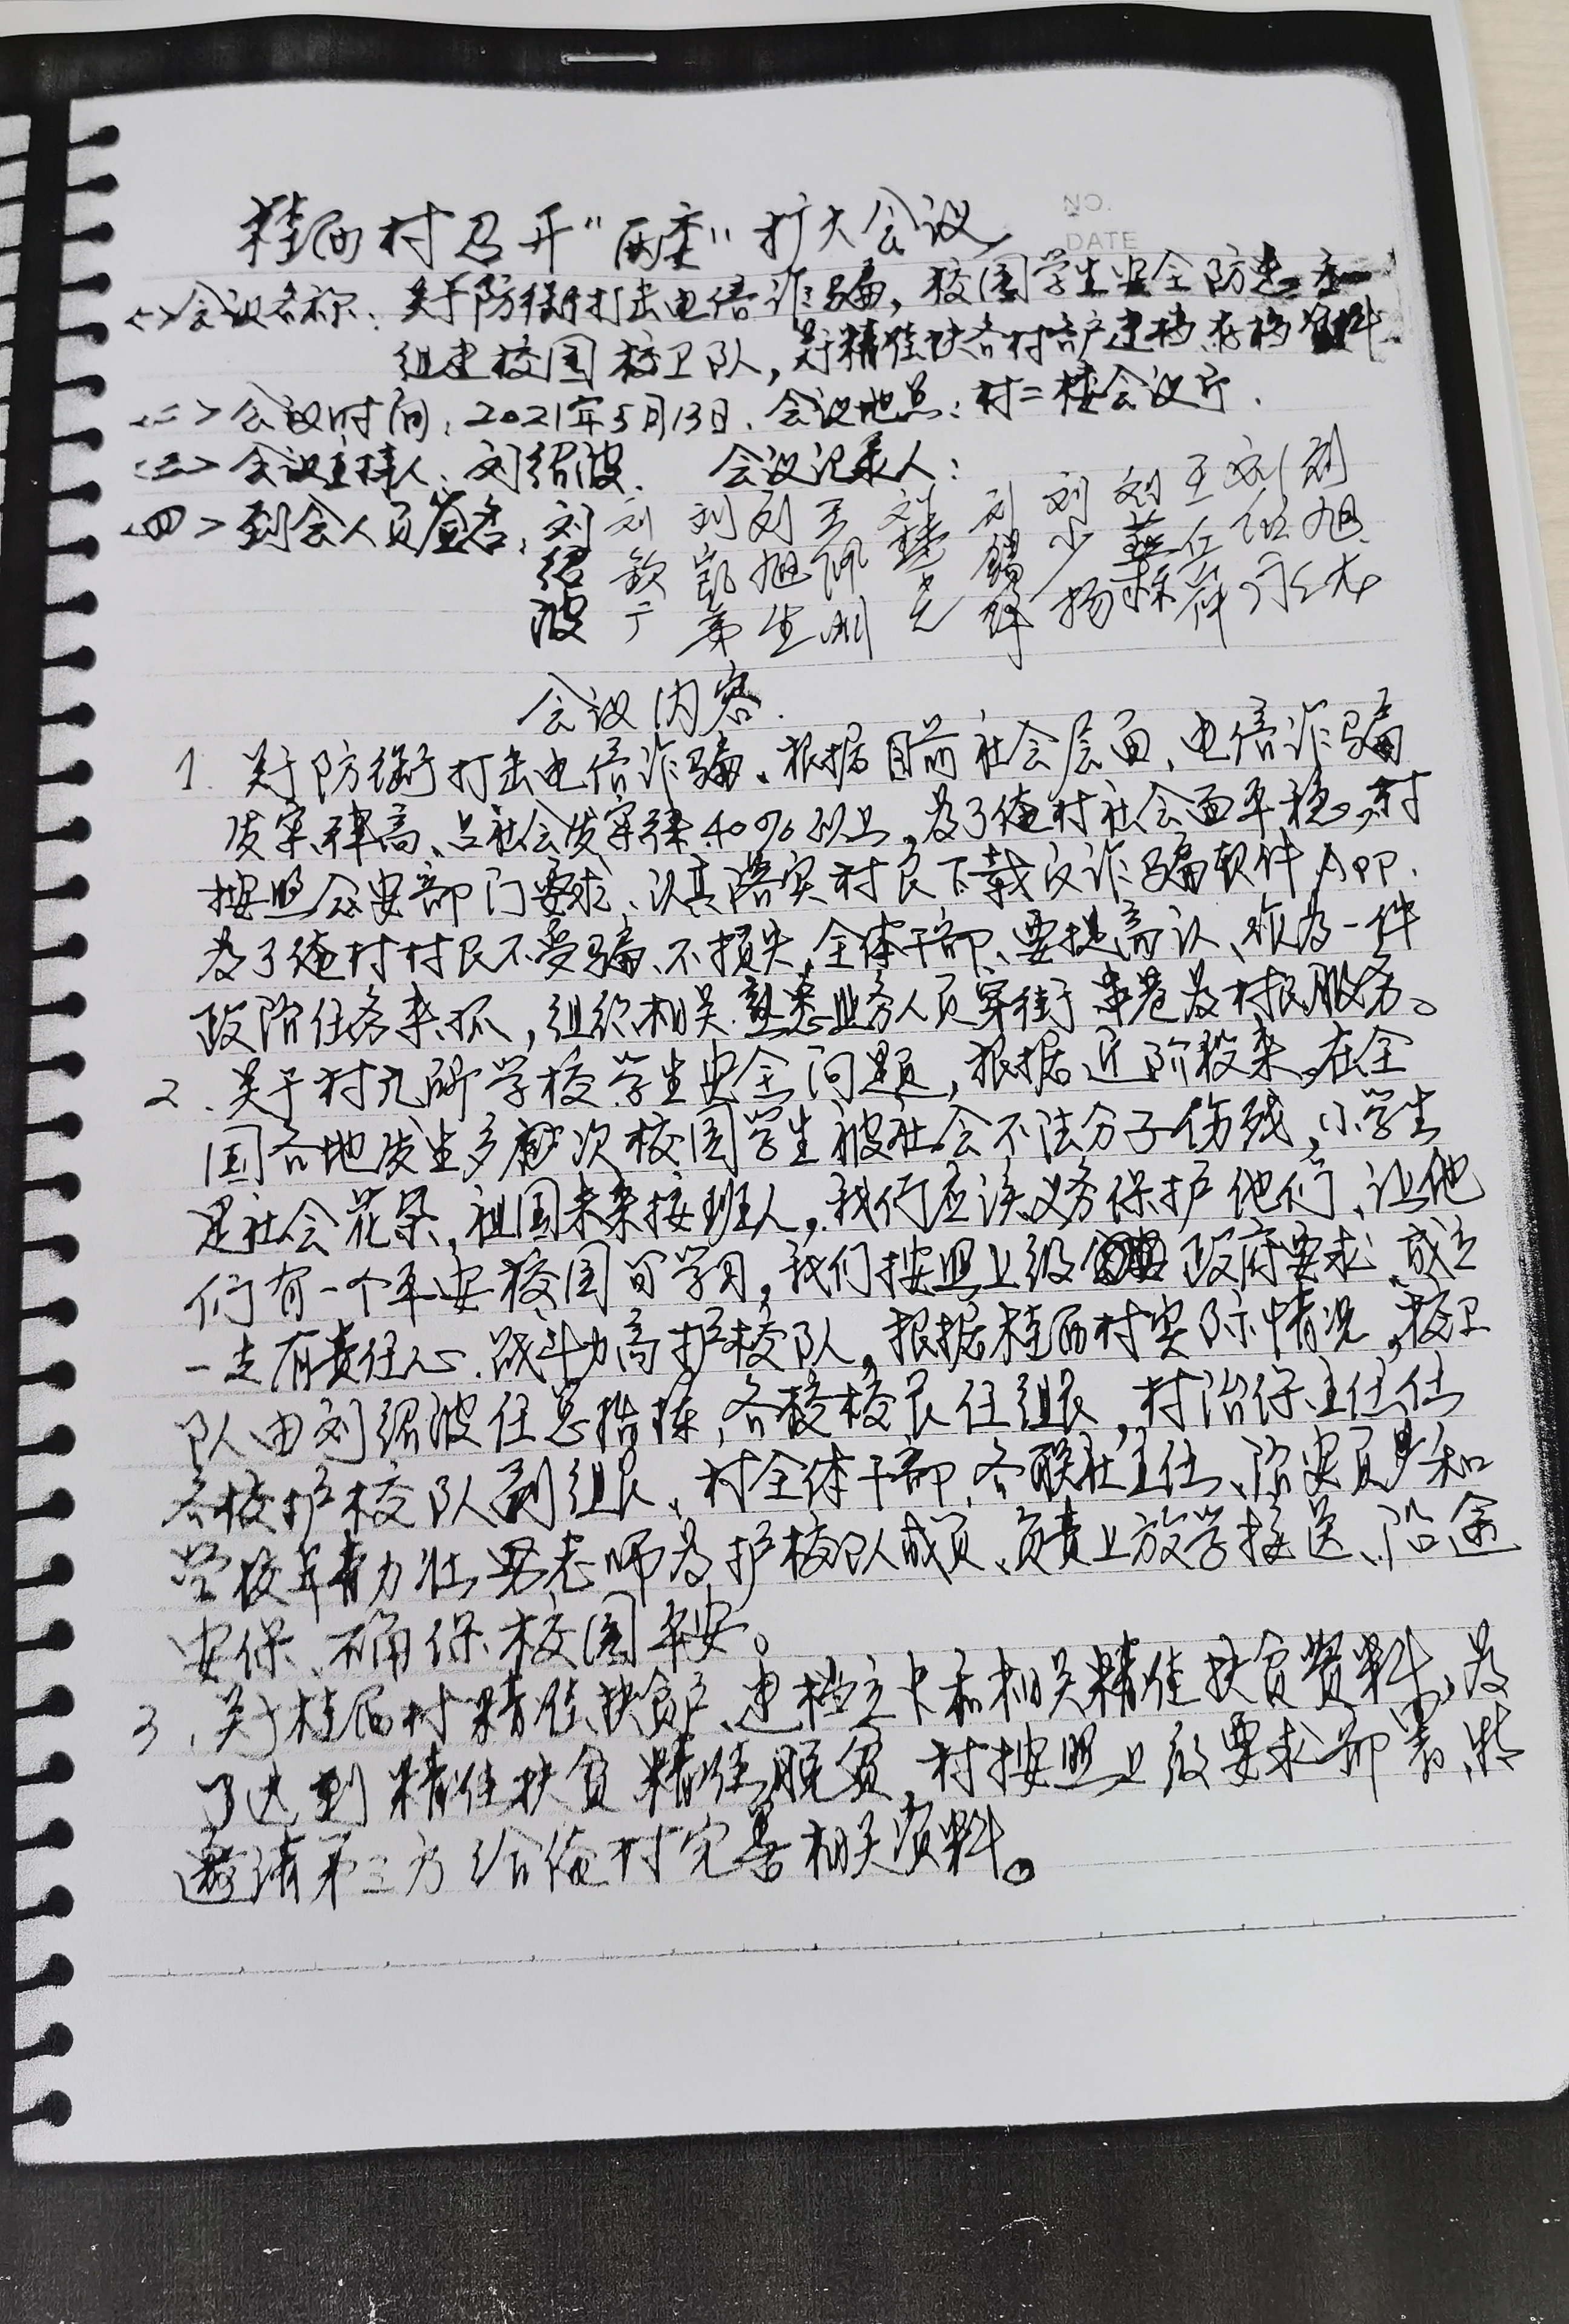 桂西村召开"两委"扩大会议
NO.
DATE
<一>会议名称：关于防御打击电信诈骗，校园学生安全防患
组建校园校卫队，关于精准扶各村各户建档存档资料
<二>会议时间：2021年5月13日. 会议地点：村二楼会议厅.
<三>会议主持人：刘绍波. 会议记录人：
<四>到会人员签名：刘绍波
会议内容.
1. 关于防御打击电信诈骗、根据目前社会层面、电信诈骗
发案率高、占社会发案率40%以上，为了俺村社会面平稳，村
按照公安部门要求、认真落实村民下载反诈骗软件APP.
为了俺村村民不受骗、不损失，全体干部、要提高认、作为一件
政阶任务来抓，组织相关熟悉业务人员穿街串巷为村民服务。
2、关于村九所学校学生安全问题，根据近阶段来，在全
国各地发生多起次校园学生被社会不法分子伤残，小学生
是社会花朵，祖国未来接班人，我们应该义务保护他们、让他
们有一个平安校园可学习，我们按照上级政府要求、成立
一支有责任心、战斗力高护校队，根据桂西村实际情况，校卫
队由刘绍波任总指挥，各校校长任组长，村治保主任任
各校护校队副组长、村全体干部、各联社主任、治安员和
学校年青力壮男老师为护校队成员、负责上放学接送、沿途
安保、确保校园平安。
3、关于桂西村精准扶贫户、建档立卡和相关精准扶贫资料，为
了达到精准扶贫精准脱贫，村按照上级要求部署、特
邀请第三方给俺村完善相关资料。